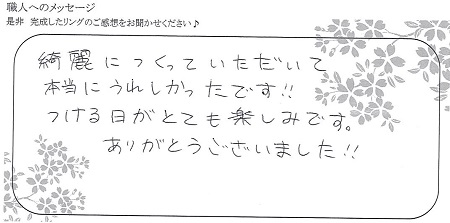 職人へのメッセージ
是非 完成したリングのご感想をお聞かせください♪
綺麗につくっていただいて
本当にうれしかったです!!
つける日がとても楽しみです。
ありがとうございました!!